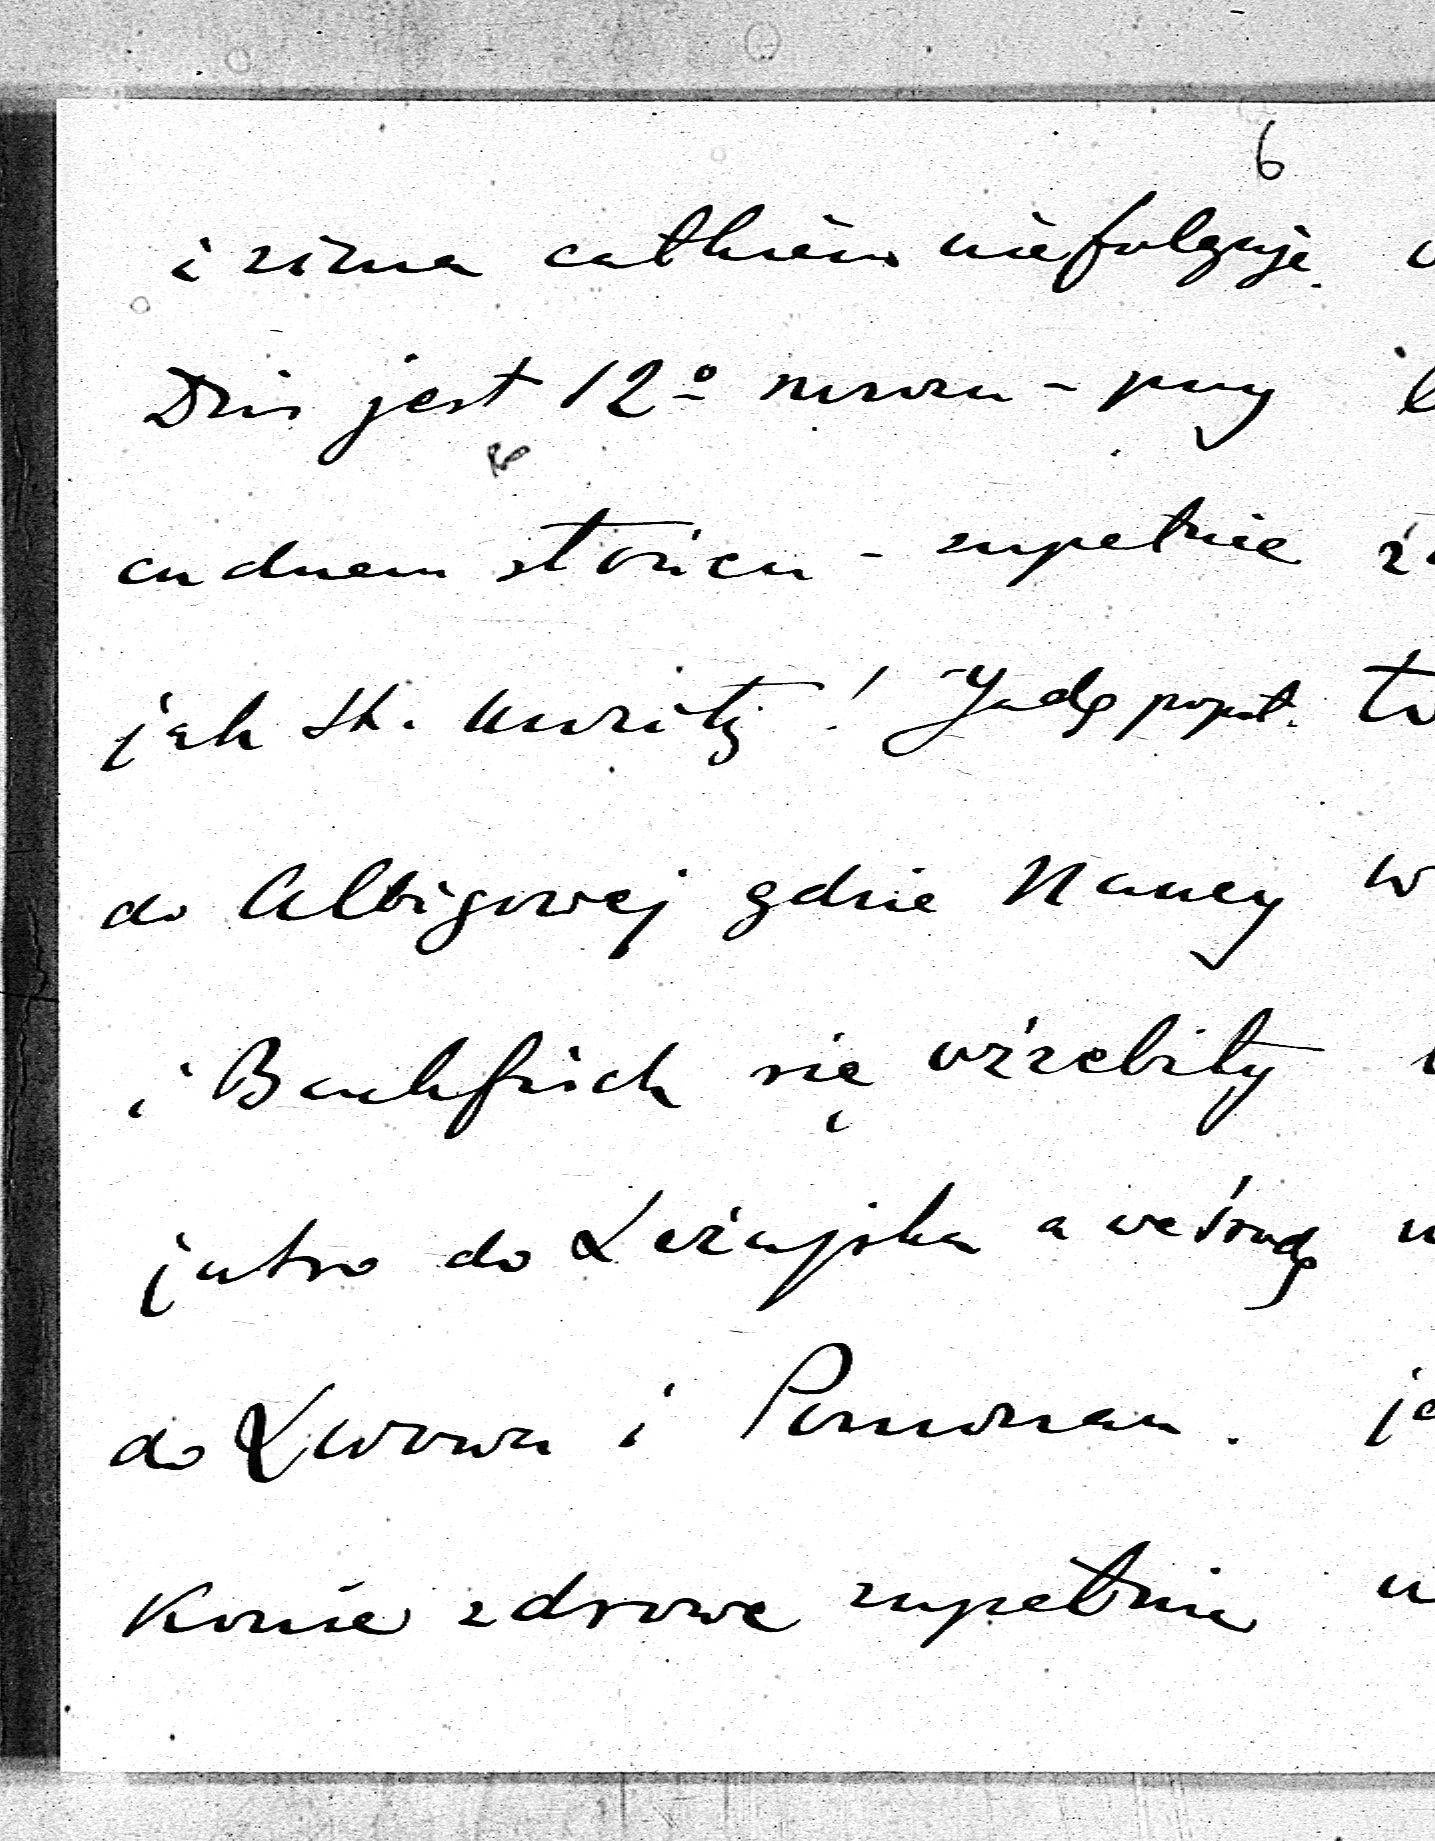 6
i zima całkiem niefolguje.
Dziś jest 12º mrozu - przy
cudnem słońcu - zupełnie
jak St. Moritz! Jadę popoł.
do Albigowej gdzie Nancy
i Backfisch się oźrebiły
jutro do Leżajska a we środę
do Lwowa i Pomorzan.
Konie zdrowe zupełnie